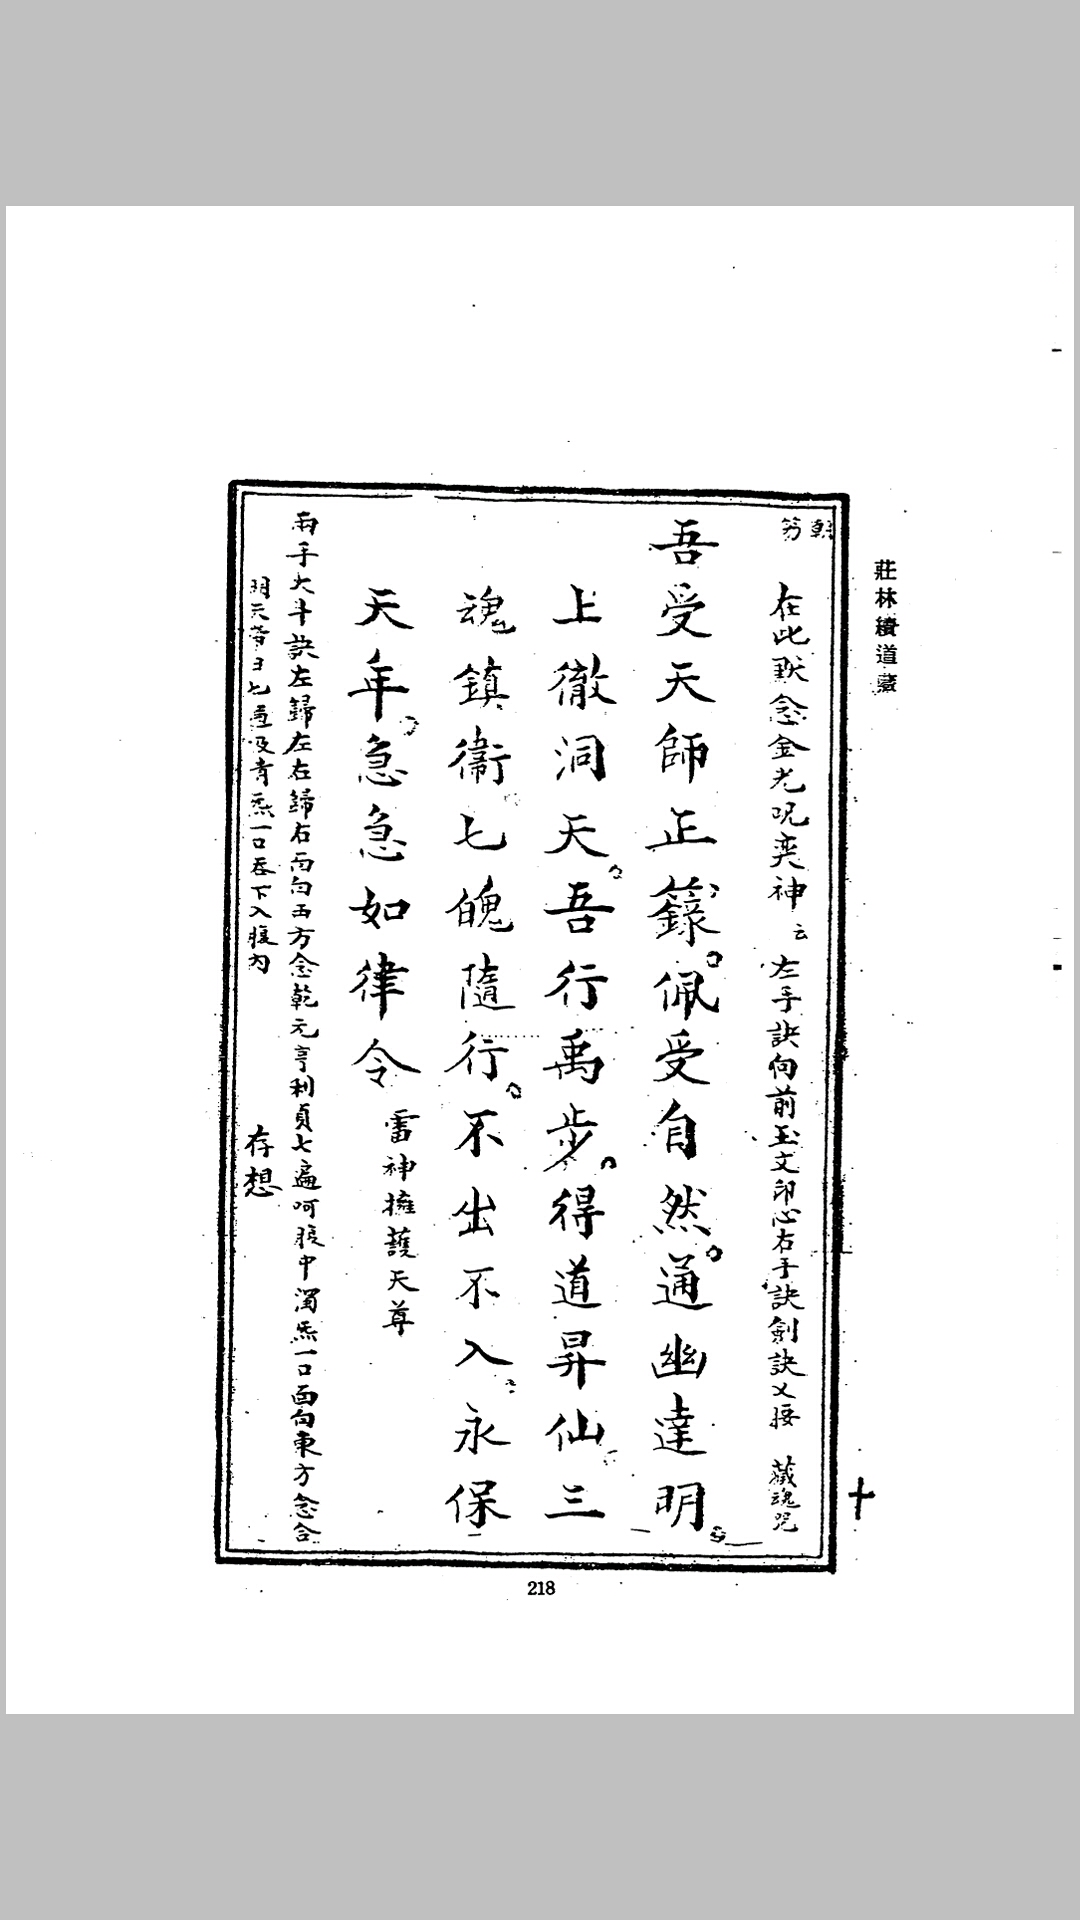 莊林續道藏
在此默念金光咒變神 云 左手訣向前玉文印心右手訣劍訣乂腰 藏魂咒
吾受天師正籙佩受自然通幽達明
上徹洞天吾行禹步得道昇仙三
魂鎮衛七魄隨行不出不入永保
天年急急如律令 雷神擁護天尊
兩手大斗訣左歸左右歸右面向西方念乾元亨利貞七遍呵腹中濁炁一口面向東方念合
明天帝日七遍吸青炁一口吞下入腹內 存想
218